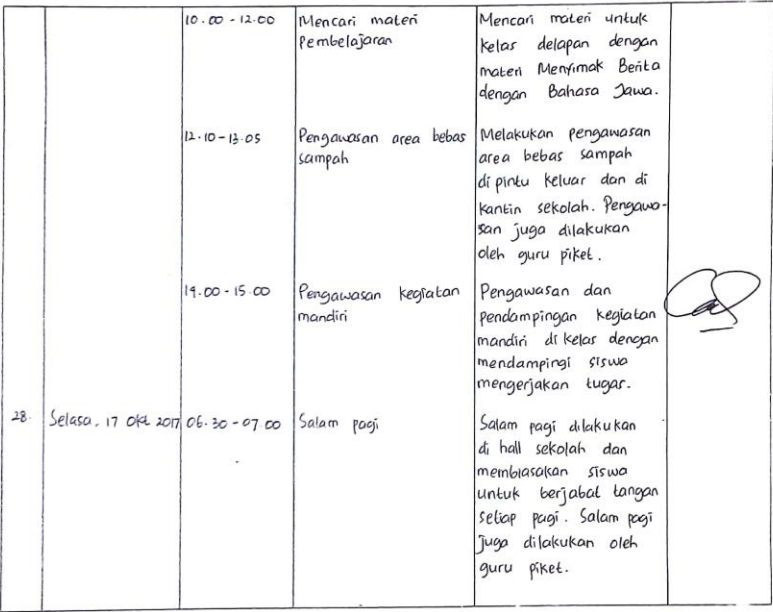 10.00 - 12.00
Mencari materi
Pembelajaran
Mencari materi untuk
kelas delapan dengan
materi Menyimak Berita
dengan Bahasa Jawa.
12.10 - 13.05
Pengawasan area bebas
sampah
Melakukan pengawasan
area bebas sampah
di pintu keluar dan di
kantin sekolah. Pengawa-
san juga dilakukan
oleh guru piket.
14.00 - 15.00
Pengawasan kegiatan
mandiri
Pengawasan dan
pendampingan kegiatan
mandiri di kelas dengan
mendampingi siswa
mengerjakan tugas.
28.
Selasa, 17 Okt 2017
06.30 - 07.00
Salam pagi
Salam pagi dilakukan
di hall sekolah dan
membiasakan siswa
untuk berjabat tangan
setiap pagi. Salam pagi
juga dilakukan oleh
guru piket.